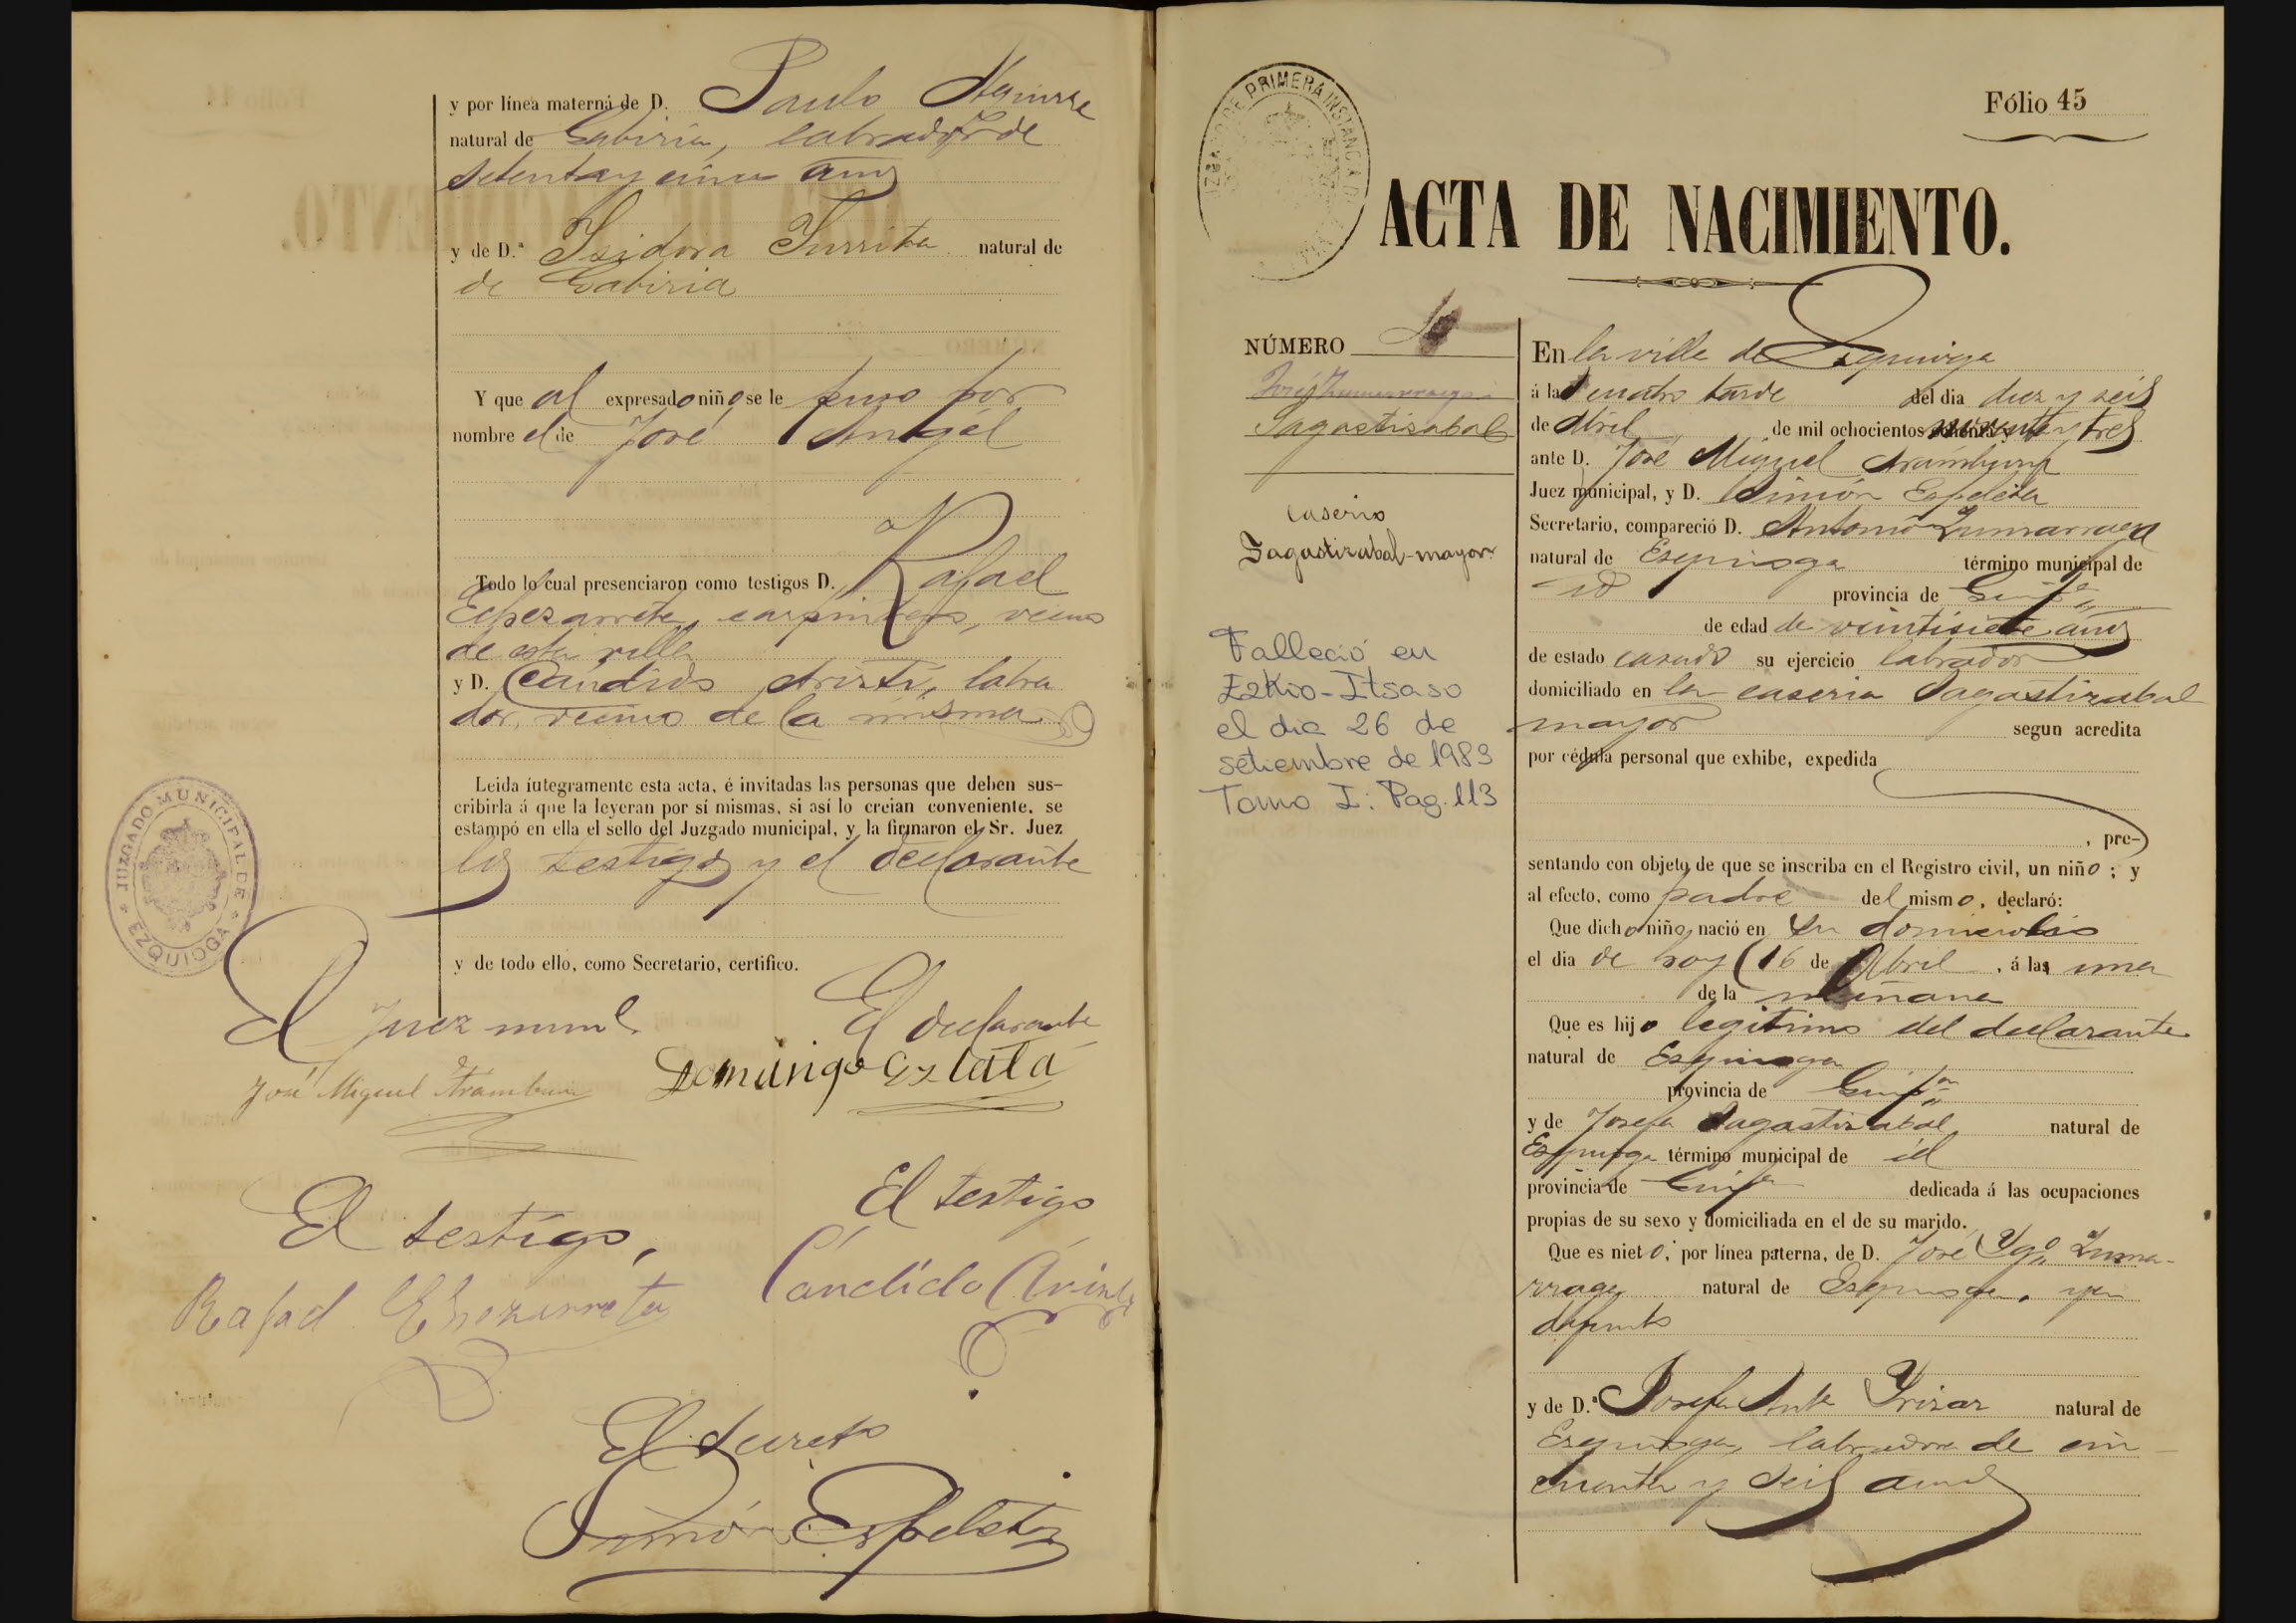 y por línea materna de D. Paulo Aguirre
natural de Gabiria, labrador de
setenta y cinco años
y de D.ª Isidora Iurrita natural de
de Gabiria
Y que al expresado niño se le puso por
nombre el de José Angel
Todo lo cual presenciaron como testigos D. Rafael
Echezarreta, carpintero, vecino
de esta villa
y D. Candido Aristi, labra
dor, vecino de la misma
Leida íntegramente esta acta, é invitadas las personas que deben sus-
cribirla á que la leyeran por sí mismas, si así lo creian conveniente, se
estampó en ella el sello del Juzgado municipal, y la firmaron el Sr. Juez
los testigos y el declarante
y de todo ello, como Secretario, certifico.
JUZGADO MUNICIPAL DE EZQUIOGA
El Juez munl
El declarante
José Miguel Aramburu
Domingo Ezlala
El testigo,
El testigo
Rafael Echezarreta
Cándido Aristi
El secreto
Simón Espeleta
JUZGADO DE PRIMERA INSTANCIA
Fólio 45
ACTA DE NACIMIENTO.
NÚMERO
José Zumarraga
Sagastizabal
caserio
Sagastizabal-mayor
Falleció en
Ezkio-Itsaso
el dia 26 de
setiembre de 1983
Tomo I: Pag. 113
En la villa de Ezquioga
á las cuatro tarde del dia diez y seis
de Abril de mil ochocientos noventa y tres
ante D. José Miguel Aramburu
Juez municipal, y D. Simón Espeleta
Secretario, compareció D. Antonio Zumarraga
natural de Ezquioga término municipal de
id provincia de Guipª
de edad de veintisiete años
de estado casado su ejercicio labrador
domiciliado en la caseria Sagastizabal
mayor segun acredita
por cédula personal que exhibe, expedida
, pre-
sentando con objeto de que se inscriba en el Registro civil, un niño; y
al efecto, como padre del mismo, declaró:
Que dicho niño nació en su domicilio
el dia de hoy (16 de Abril, á las una
de la mañana
Que es hijo legitimo del declarante
natural de Ezquioga
provincia de Guipª
y de Josefa Sagastizabal natural de
Ezquioga término municipal de id
provincia de Guipª dedicada á las ocupaciones
propias de su sexo y domiciliada en el de su marido.
Que es nieto; por línea paterna, de D. José Ygº Zuma-
rraga natural de Ezquioga, ya
difunto
y de D.ª Josefa Antª Yrizar natural de
Ezquioga, labradora de cin
cuenta y seis años